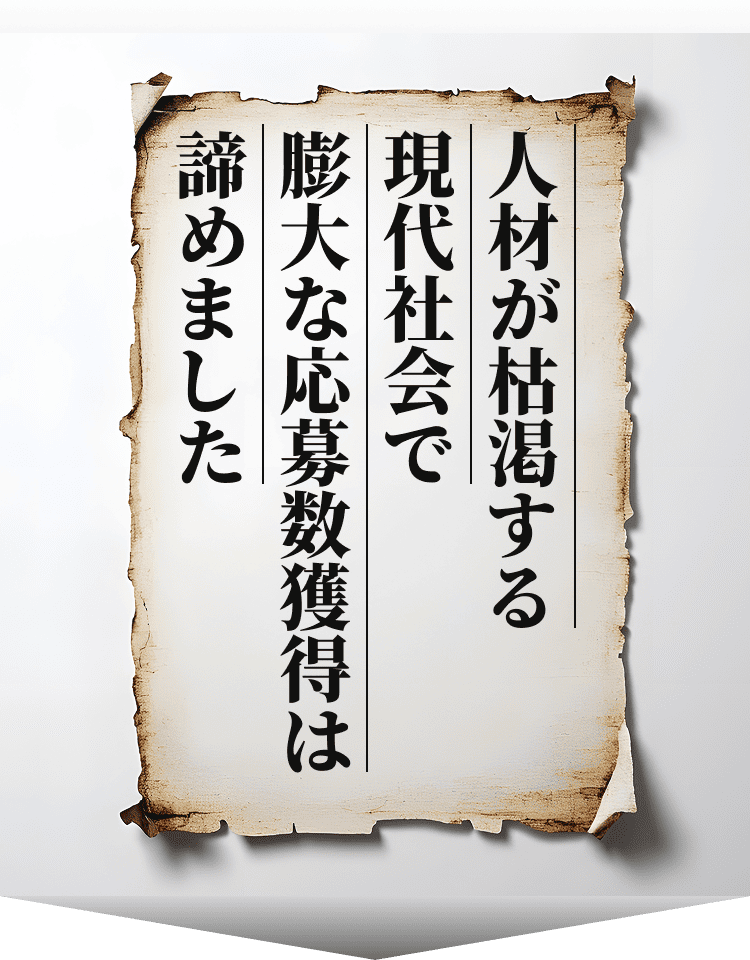 人材が枯渇する
現代社会で
膨大な応募数獲得は
諦めました